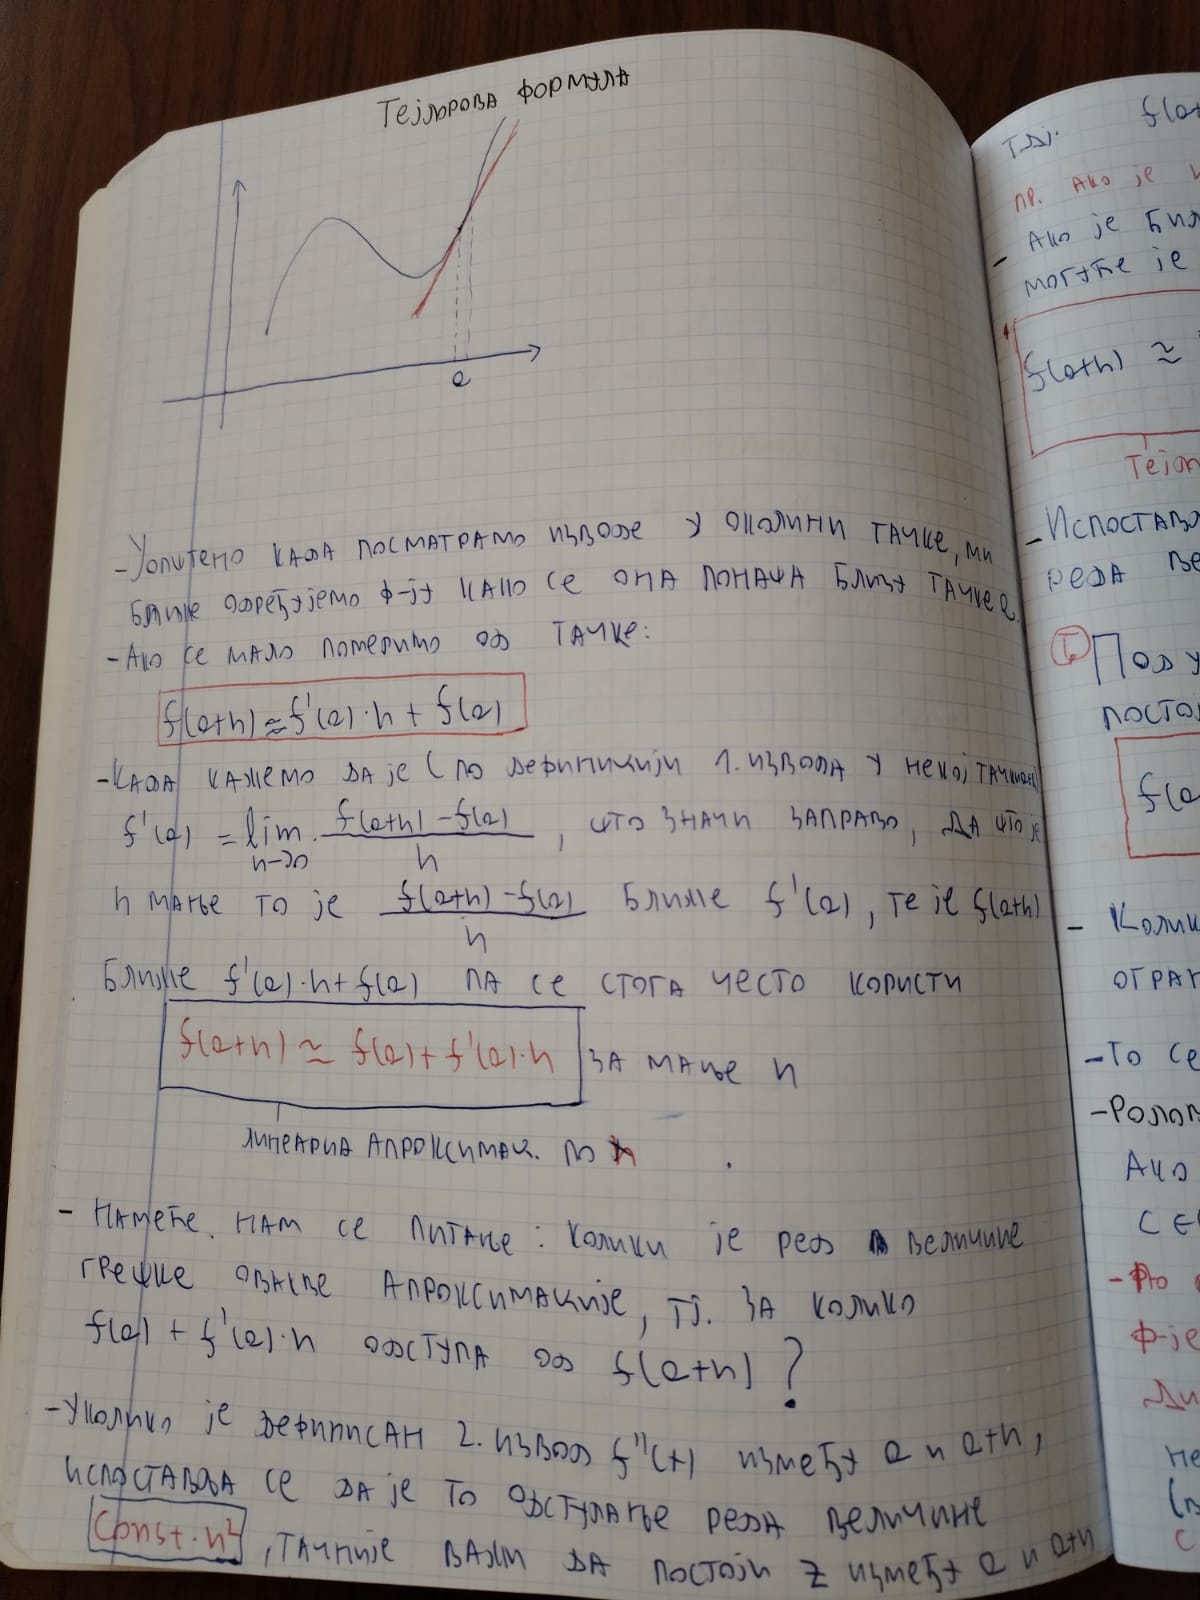 Тејлорова формула
a
- Уопштено када посматрамо изводе у околини тачке, ми
ближе одређујемо ф-ју како се она понаша близу тачке a.
- Ако се мало померимо од тачке:
f(a+h) ≈ f'(a)·h + f(a)
- Када кажемо да је (по дефиницији 1. извода у некој тачки
f'(a) = lim h→0 (f(a+h) - f(a))/h , што значи заправо, да што је
h мање то је (f(a+h) - f(a))/h ближе f'(a), те је f(a+h)
ближе f'(a)·h + f(a) па се стога често користи
f(a+h) ≃ f(a) + f'(a)·h за мање h
линеарна апроксимац. по h
- Намеће нам се питање: колики је ред величине
грешке овакве апроксимације, тј. за колико
f(a) + f'(a)·h одступа од f(a+h)?
- Уколико је дефинисан 2. извод f''(t) између a и a+h,
испоставља се да је то одступање реда величине
const·h², тачније важи да постоји z између a и a+h
тај.
пр. Ако је
- Ако је
могуће је
f(a+h) ≈
- Испоставља
реда ве
T.
Под у
посто
f(a
- Колик
огран
- То се
- Рол
Ако
ф-је
не